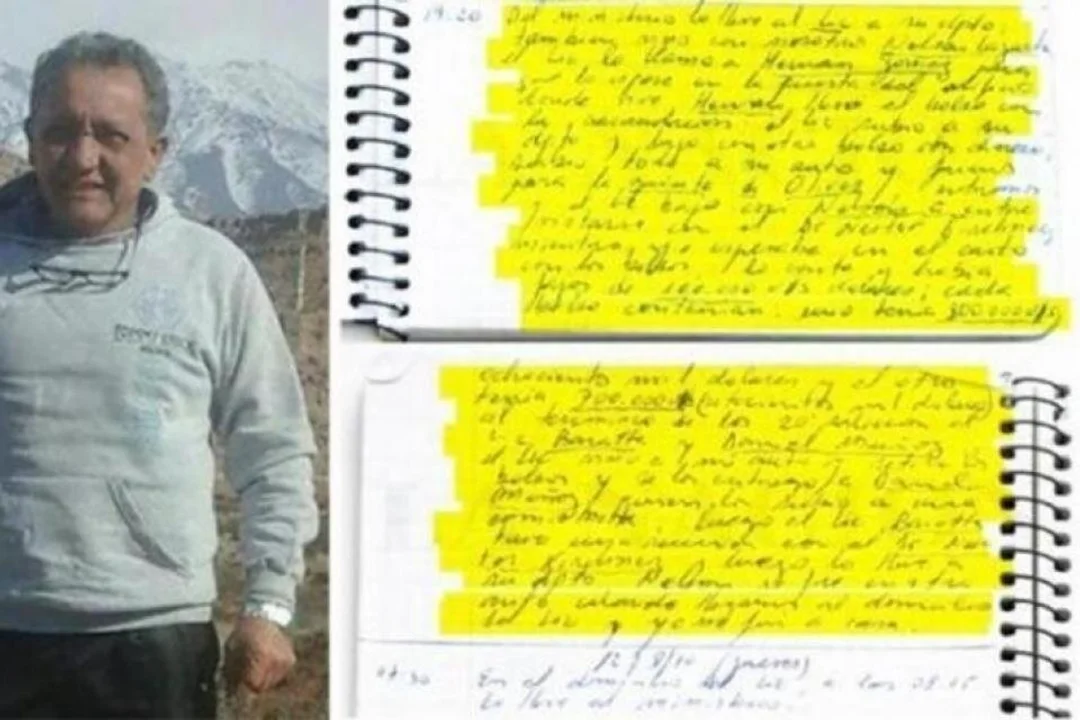 19:20 Del ministerio lo lleve al Lic a su dpto.
también vino con nosotros Nelson Lazarte
el Lic lo llamo a Hernan Gomez para
que lo espere en la puerta del edificio
donde vive, Hernan, llevo el bolso con
la recaudación el Lic subio a su
dpto y bajo con otro bolso con dinero,
todo a mi auto y fuimos
para la quinta de Olivos
y el Lic bajo con Nelson a entre
con el Dr Nestor Kirchner,
mientras yo esperaba en el auto
con los bolsos. Lo conte y habia
fajos de 100.000 u$s dolares; cada
bolso contenian. uno tenia 800.000 u$s
ochocientos mil dolares y el otro
tenia 700.000 $ (setecientos mil dolares)
al termino de los 20 minutos el
Lic Baratta y Daniel Muñoz
el Lic vino a mi auto y los
bolsos y se los entrego a Daniel
Muñoz
luego el Lic Baratta
tuvo una reunion con el Dr Nes
tor Kirchner y luego lo lleve a
su dpto Nelson se fue en otro
auto cuando llegamos al domicilio
del Lic y yo me fui a casa.
12/8/10 (jueves)
07:30 En el domicilio del Lic, a las 08:15
lo lleve al ministerio.